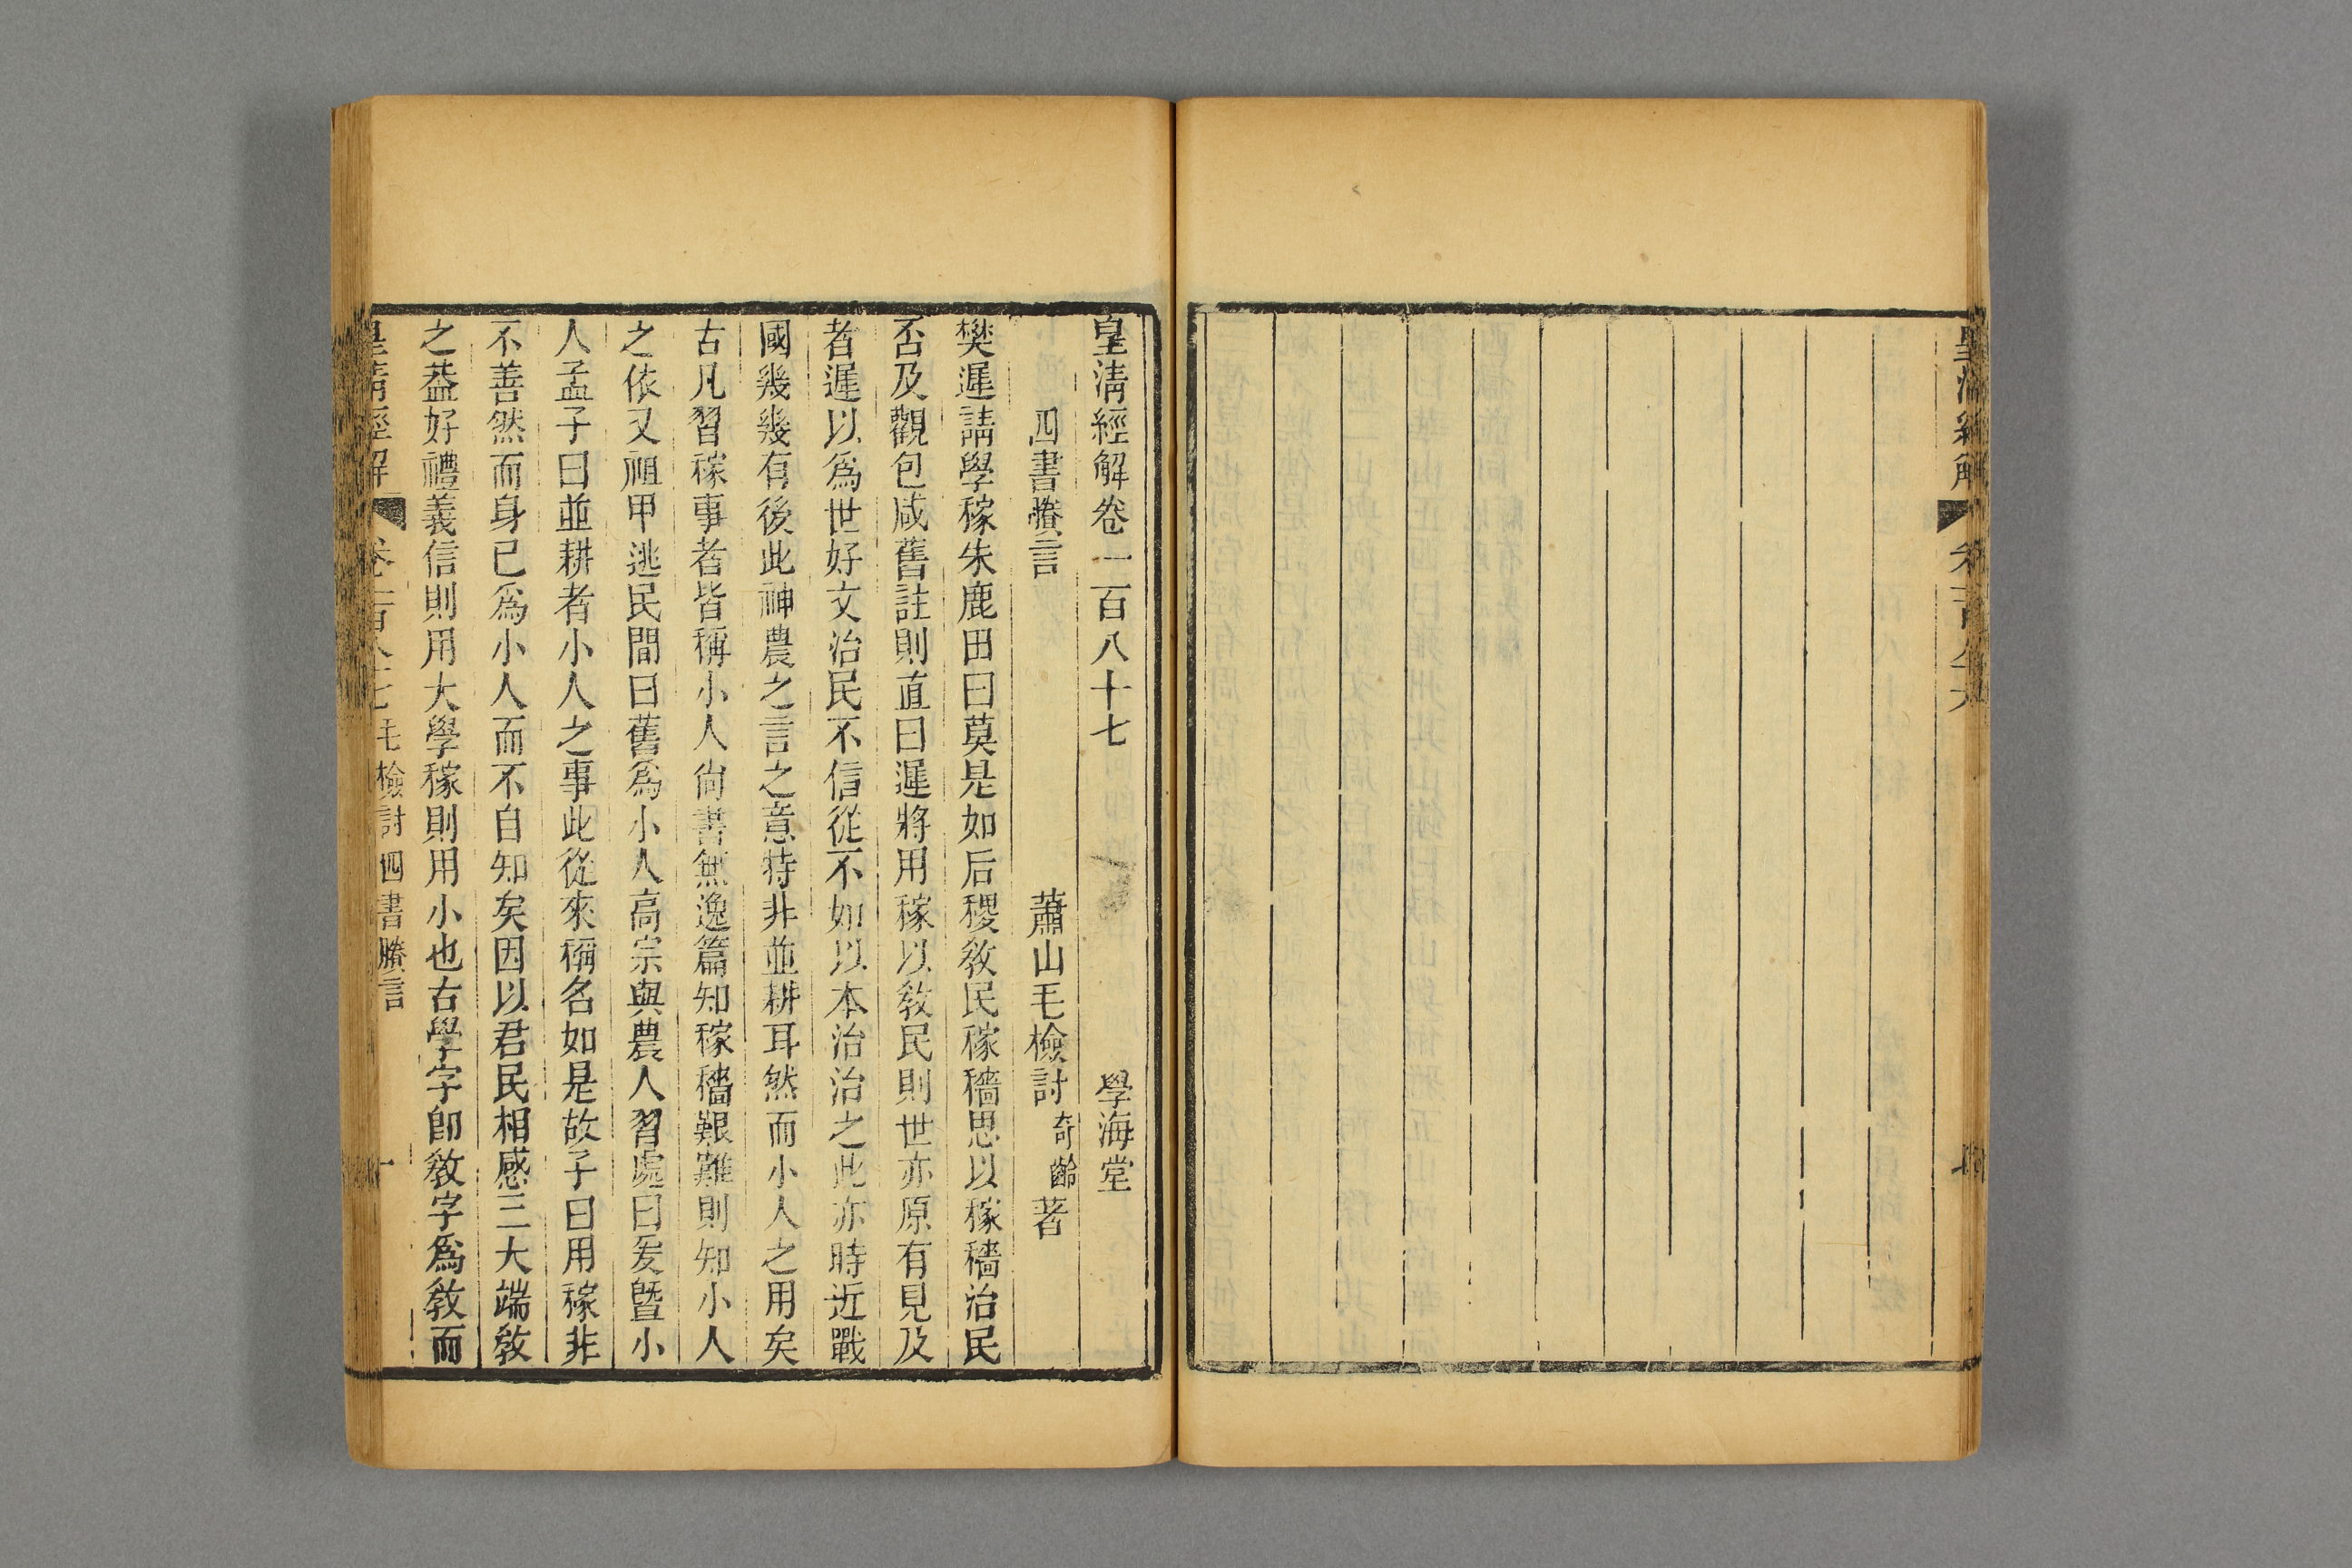 皇清經解卷一百八十七　學海堂
四書賸言　蕭山毛檢討奇齡著
樊遲請學稼朱鹿田曰莫是如后稷敎民稼穡思以稼穡治民
否及觀包咸舊註則直曰遲將用稼以敎民則世亦原有見及
者遲以爲世好文治民不信從不如以本治治之此亦時近戰
國幾幾有後此神農之言之意特非並耕耳然而小人之用矣
古凡習稼事者皆稱小人尙書無逸篇知稼穡艱難則知小人
之依又祖甲逃民間曰舊爲小人高宗與農人習處曰爰曁小
人孟子曰並耕者小人之事此從來稱名如是故子曰用稼非
不善然而身已爲小人而不自知矣因以君民相感三大端敎
之葢好禮義信則用大學稼則用小也古學字卽敎字爲敎而
皇清經解　卷一百八十七毛檢討四書賸言　一